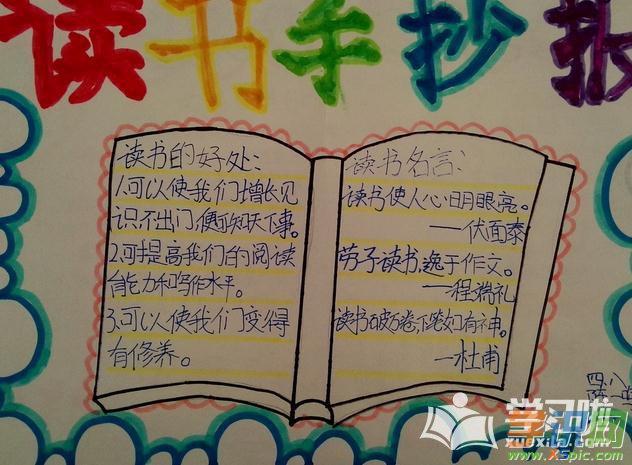 读书手抄报
读书的好处：
1.可以使我们增长见
识，不出门，便可知天下事。
2.可提高我们的阅读
能力和写作水平。
3.可以使我们变得
有修养。
读书名言：
读书使人心明眼亮。
——伏面泰
劳于读书，逸于作文。
——程端礼
读书破万卷，下笔如有神。
——杜甫
四八
学习啦
xuexila.com
www.xspic.com